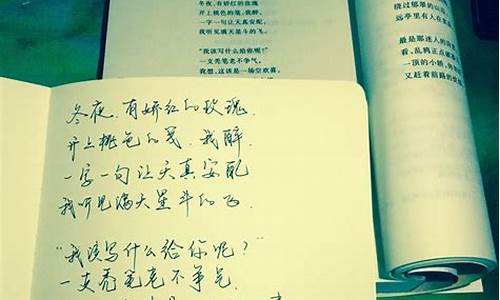 冬夜,有娇红的玫瑰
开上桃色的笺,我醉,
一字一句让天真安配,
我听见满天星斗的飞。
"我该写什么给你呢?"
一支秃笔老不争气。
我想,这该是一场空欢喜。
绕过郁翠的山
远亭里有人在
最是那迷人的
看,乱鸦正点破
一顶的小轿,
又赶着前路的
冬夜,有娇红的玫瑰,
开上桃色的笺,我醉,
一字一句让天真安配
我听见满天星斗的飞.
"我该写什么给你呢?"
一支秃笔老不争气.